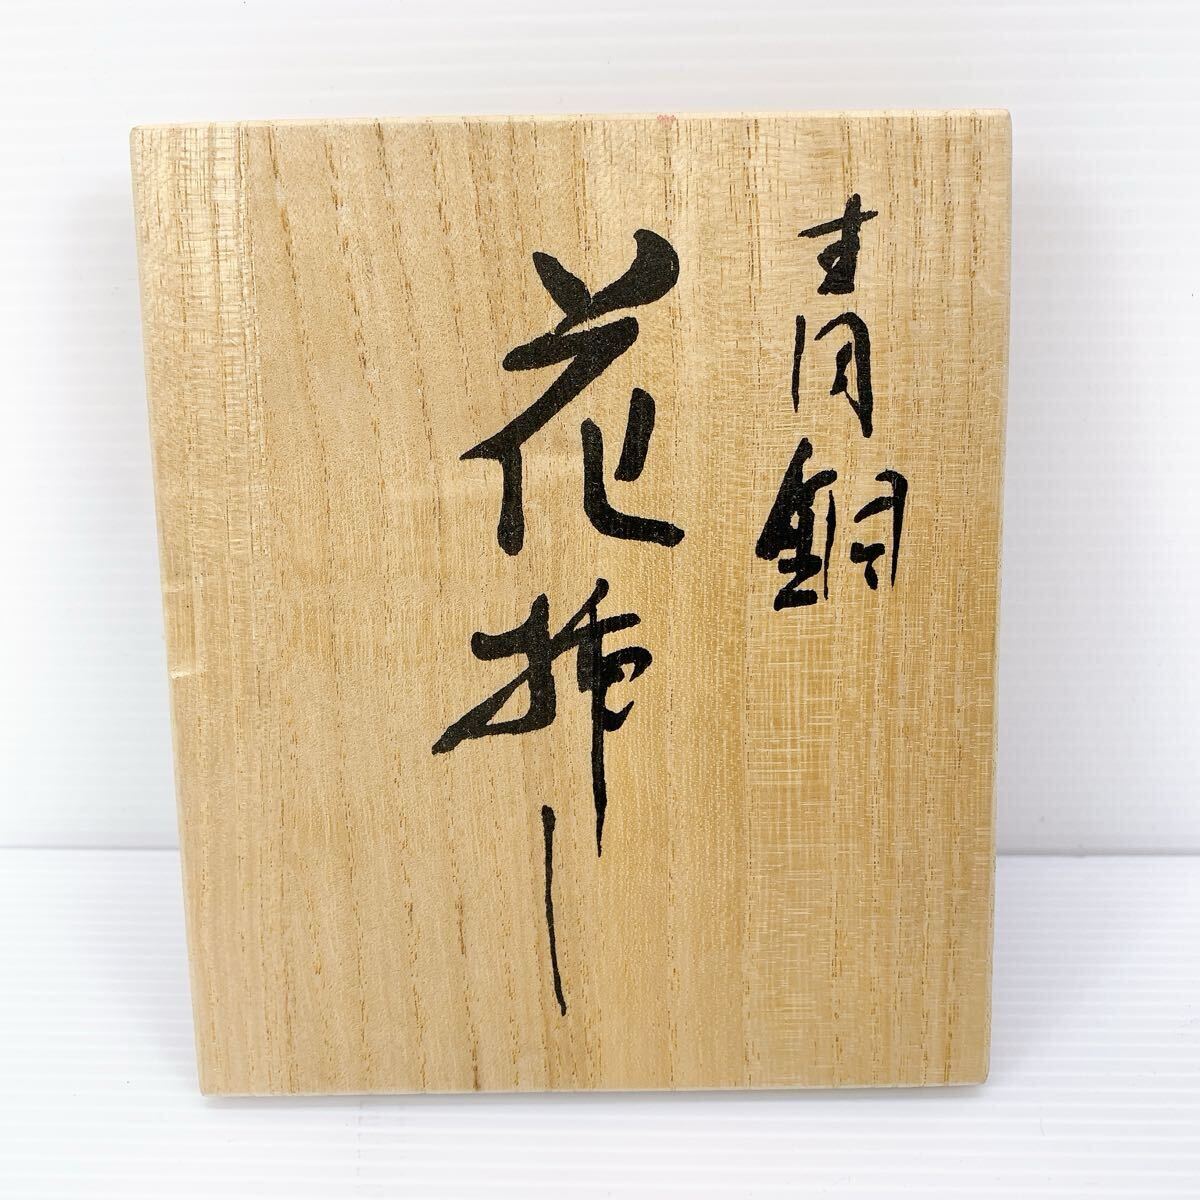 青銅
花挿し